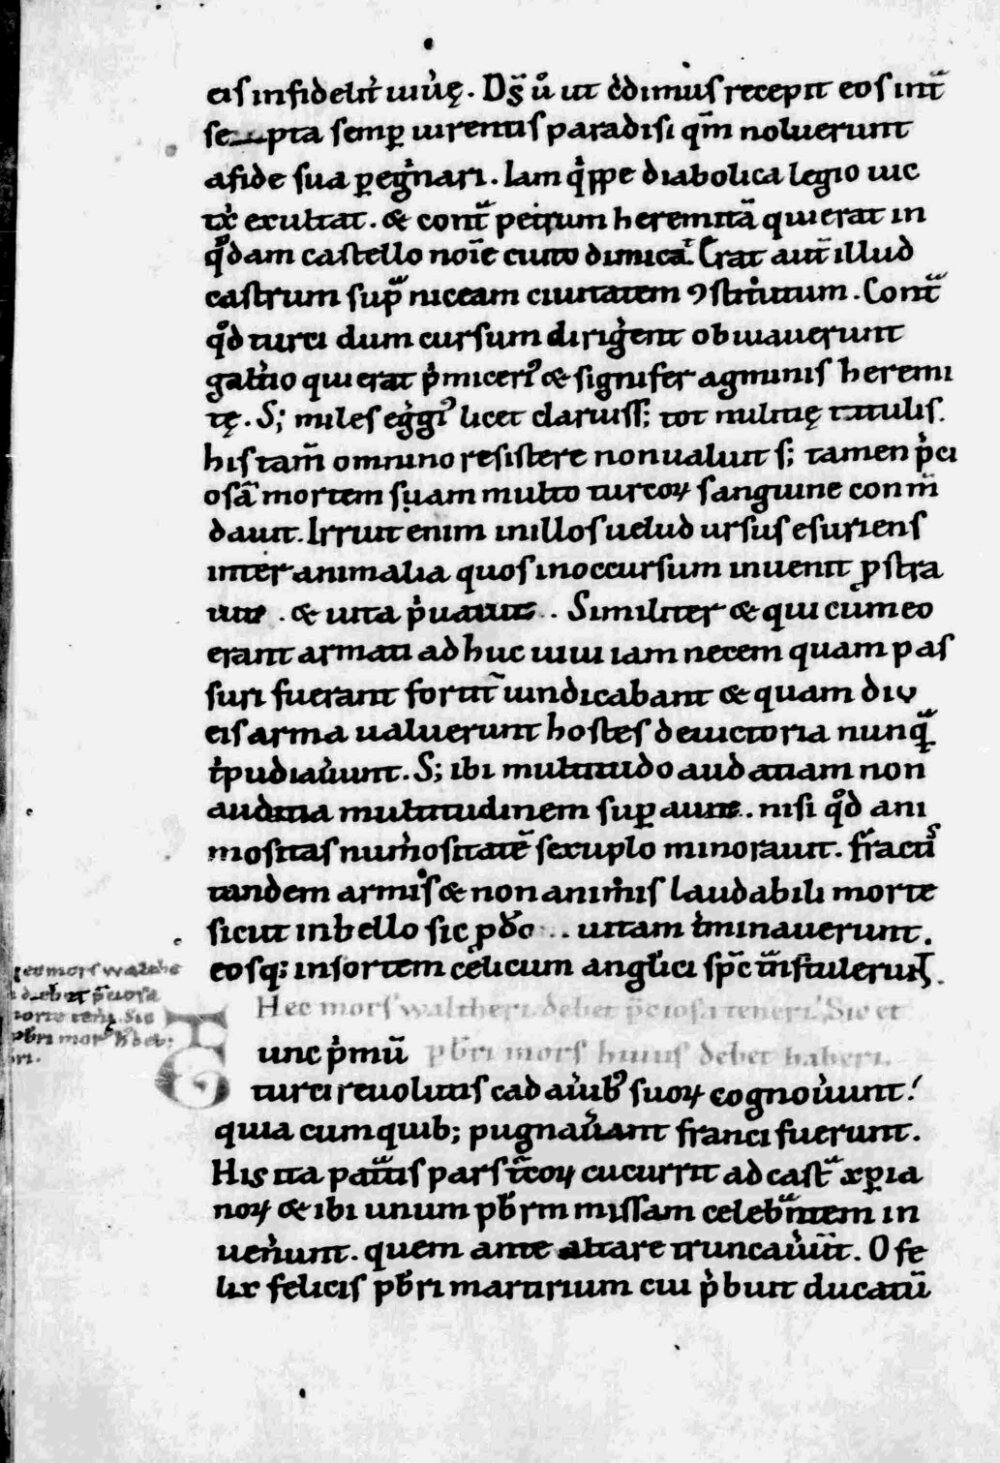 eis infidelit̾ uiuȩ. Ds̄ u̾ ut c̾dimus recepit eos int̄
se pta semꝑ uirentis paradisi qm̄ noluerunt
afide sua ꝑeg̾nari. Iam q̾ppe diabolica legio uic
tx̾ exultat. & cont̄ petrum heremitā qui erat in
qͦdam castello noīe ciuito dimicat̾. Erat aut̄ illud
castrum sup̄ niceam ciuitatem ꝯstitutum. Cont̄
qͦd turci dum cursum dirig̾ent obuiauerunt
galt̾io qui erat p̾miceriꝰ & signifer agminis heremi
tȩ. S; miles eg̾giꝰ licet clariuss; tot militiȩ titulis.
his tam̄ omnino resistere non ualuit s; tamen p̾ci
osā mortem suam multo turcoꝝ sanguine conm̄
dauit. Irruit enim in illos uelud ursus esuriens
inter animalia quos in occursum inuenit ꝓstra
uit. & uita p̾uauit. Similiter & qui cum eo
erant armati ad huc uiui iam necem quam pas
suri fuerant fortit̾ uindicabant & quam diu
eis arma ualuerunt hostes de uictoria nunq̄
t̾pudiau̾unt. S; ibi multitudo audatiam non
audatia multitudinem suꝑauit. nisi qͦd ani
mositas num̾ositatē sexuplo minorauit. fractis
tandem armis & non animis laudabili morte
sicut in bello sic ꝓ dō uitam t̾minauerunt.
eosq; in sortem celicum angl̾ici sp̄c t̄nstulerunt.
Hec mors waltheri debet p̄ciosa teneri. Sic et
Tunc p̾mū pb̄ri mors huius debet haberi.
turci reuolutis cadau̾ibꝰ suoꝝ cognou̾unt
quia cum quib; pugnau̾ant franci fuerunt.
His ita pat̄tis pars t̄coꝝ cucurrit ad cast̄ xꝑia
noꝝ & ibi unum pb̄rm missam celeb̄ntem in
uen̾unt. quem ante altare truncau̾ūt. O fe
lix felicis pb̄ri martirium cui p̾buit ducatū